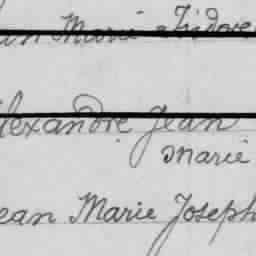 an Marie Isidore
lexandre Jean
Marie
ean Marie Joseph